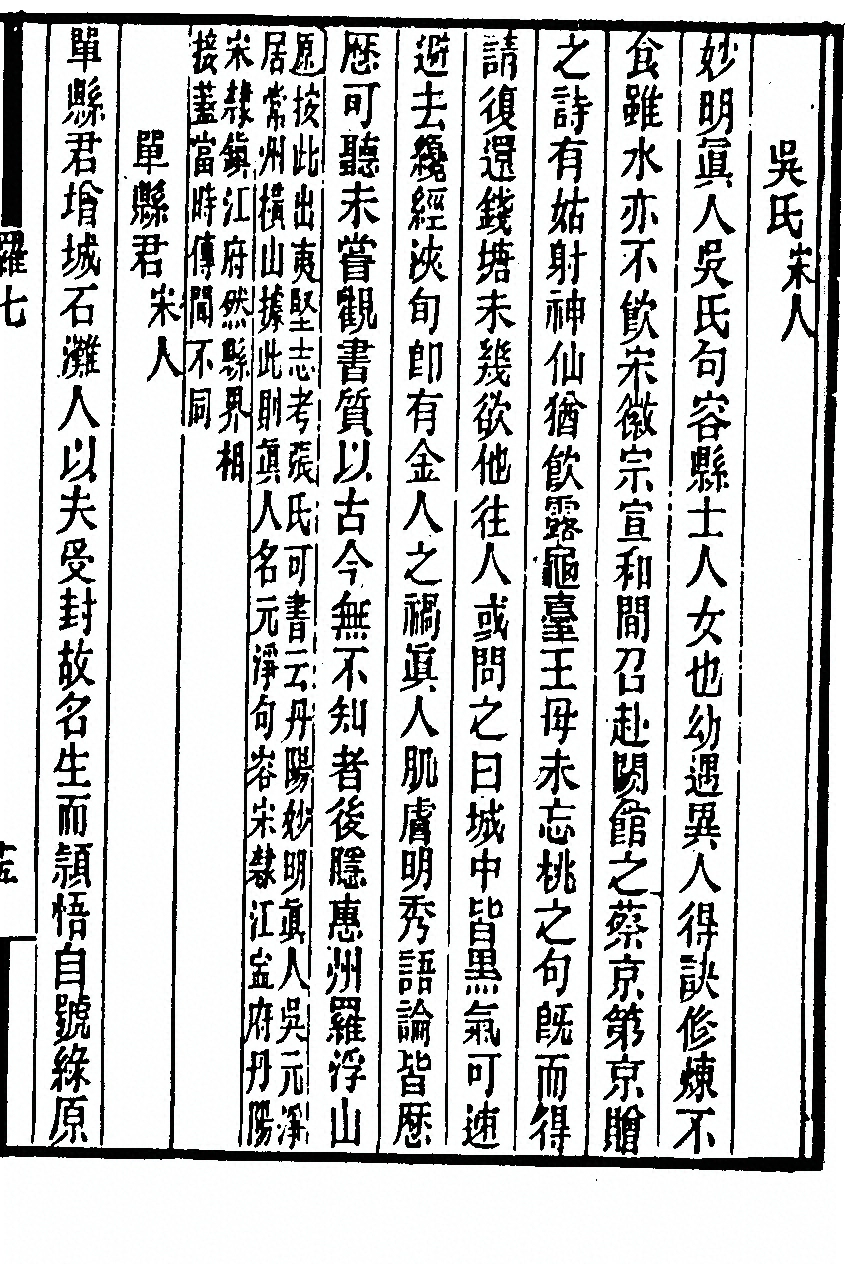 吳氏 宋人
妙明眞人吳氏句容縣士人女也幼遇異人得訣修煉不
食雖水亦不飲宋徽宗宣和間召赴闕館之蔡京第京贈
之詩有姑射神仙猶飲露龜臺王母未忘桃之句旣而得
請復還錢塘未幾欲他往人或問之曰城中皆黑氣可速
避去纔經浹旬卽有金人之禍眞人肌膚明秀語論皆歷
歷可聽未嘗觀書質以古今無不知者後隱惠州羅浮山
原按此出夷堅志考張氏可書云丹陽妙明眞人吳元淨
居常州橫山據此則眞人名元淨句容宋隸江寍府丹陽
宋隸鎮江府然縣界相
接蓋當時傳聞不同
單縣君 宋人
單縣君增城石灘人以夫受封故名生而頴悟自號綠原
羅七